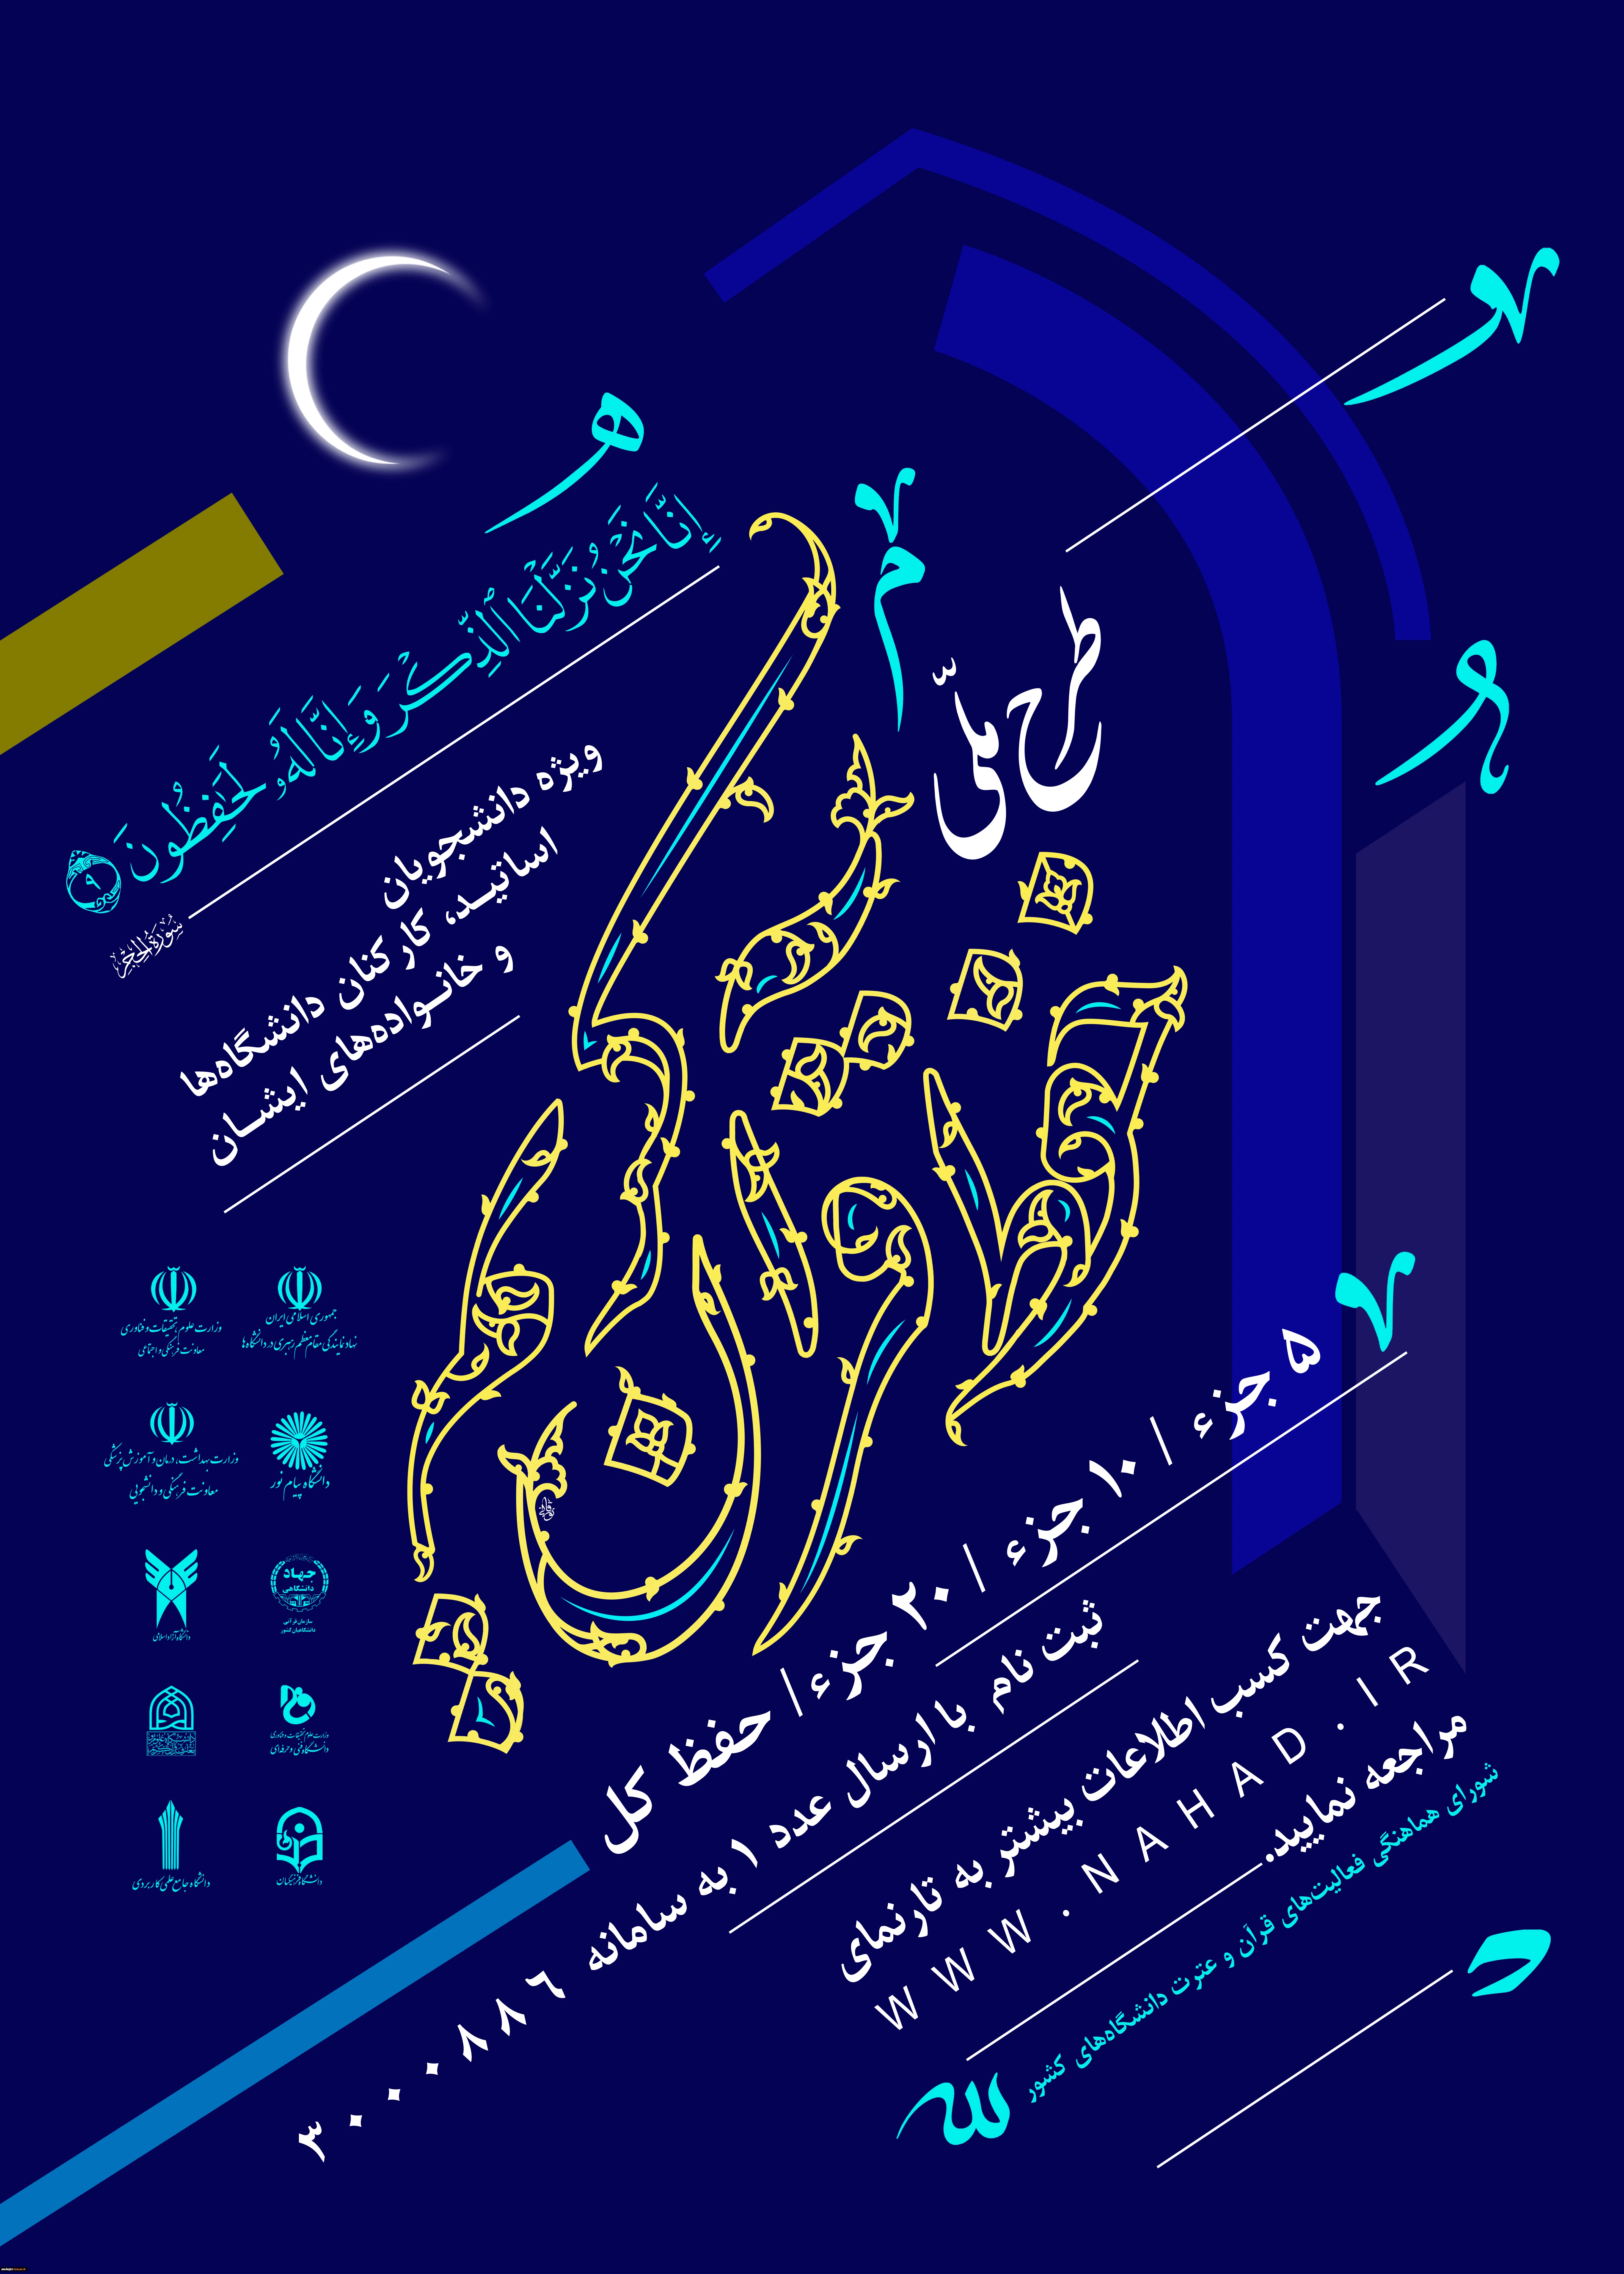 طرح ملّی
حفظ قرآن کریم
إِنَّا نَحْنُ نَزَّلْنَا ٱلذِّكْرَ وَإِنَّا لَهُۥ لَحَٰفِظُونَ ۹
سُورَةُ الحِجْر
ویژه دانشجویان
اساتید، کارکنان دانشگاه‌ها
و خانواده‌های ایشان
۵ جزء / ۱۰ جزء / ۲۰ جزء / حفظ کل
ثبت نام با ارسال عدد ۱ به سامانه ۳۰۰۰۸۸۶
جهت کسب اطلاعات بیشتر به تارنمای
WWW.NAHAD.IR
مراجعه نمایید.
شورای هماهنگی فعالیت‌های قرآن و عترت دانشگاه‌های کشور
جمهوری اسلامی ایران
نهاد نمایندگی مقام معظم رهبری در دانشگاه‌ها
وزارت علوم، تحقیقات و فناوری
معاونت فرهنگی و اجتماعی
دانشگاه پیام نور
وزارت بهداشت، درمان و آموزش پزشکی
معاونت فرهنگی و دانشجویی
جهاد
دانشگاهی
سازمان قرآنی
دانشگاهیان کشور
دانشگاه آزاد اسلامی
وزارت علوم، تحقیقات و فناوری
دانشگاه فنی و حرفه‌ای
دانشگاه فرهنگیان
دانشگاه جامع علمی کاربردی